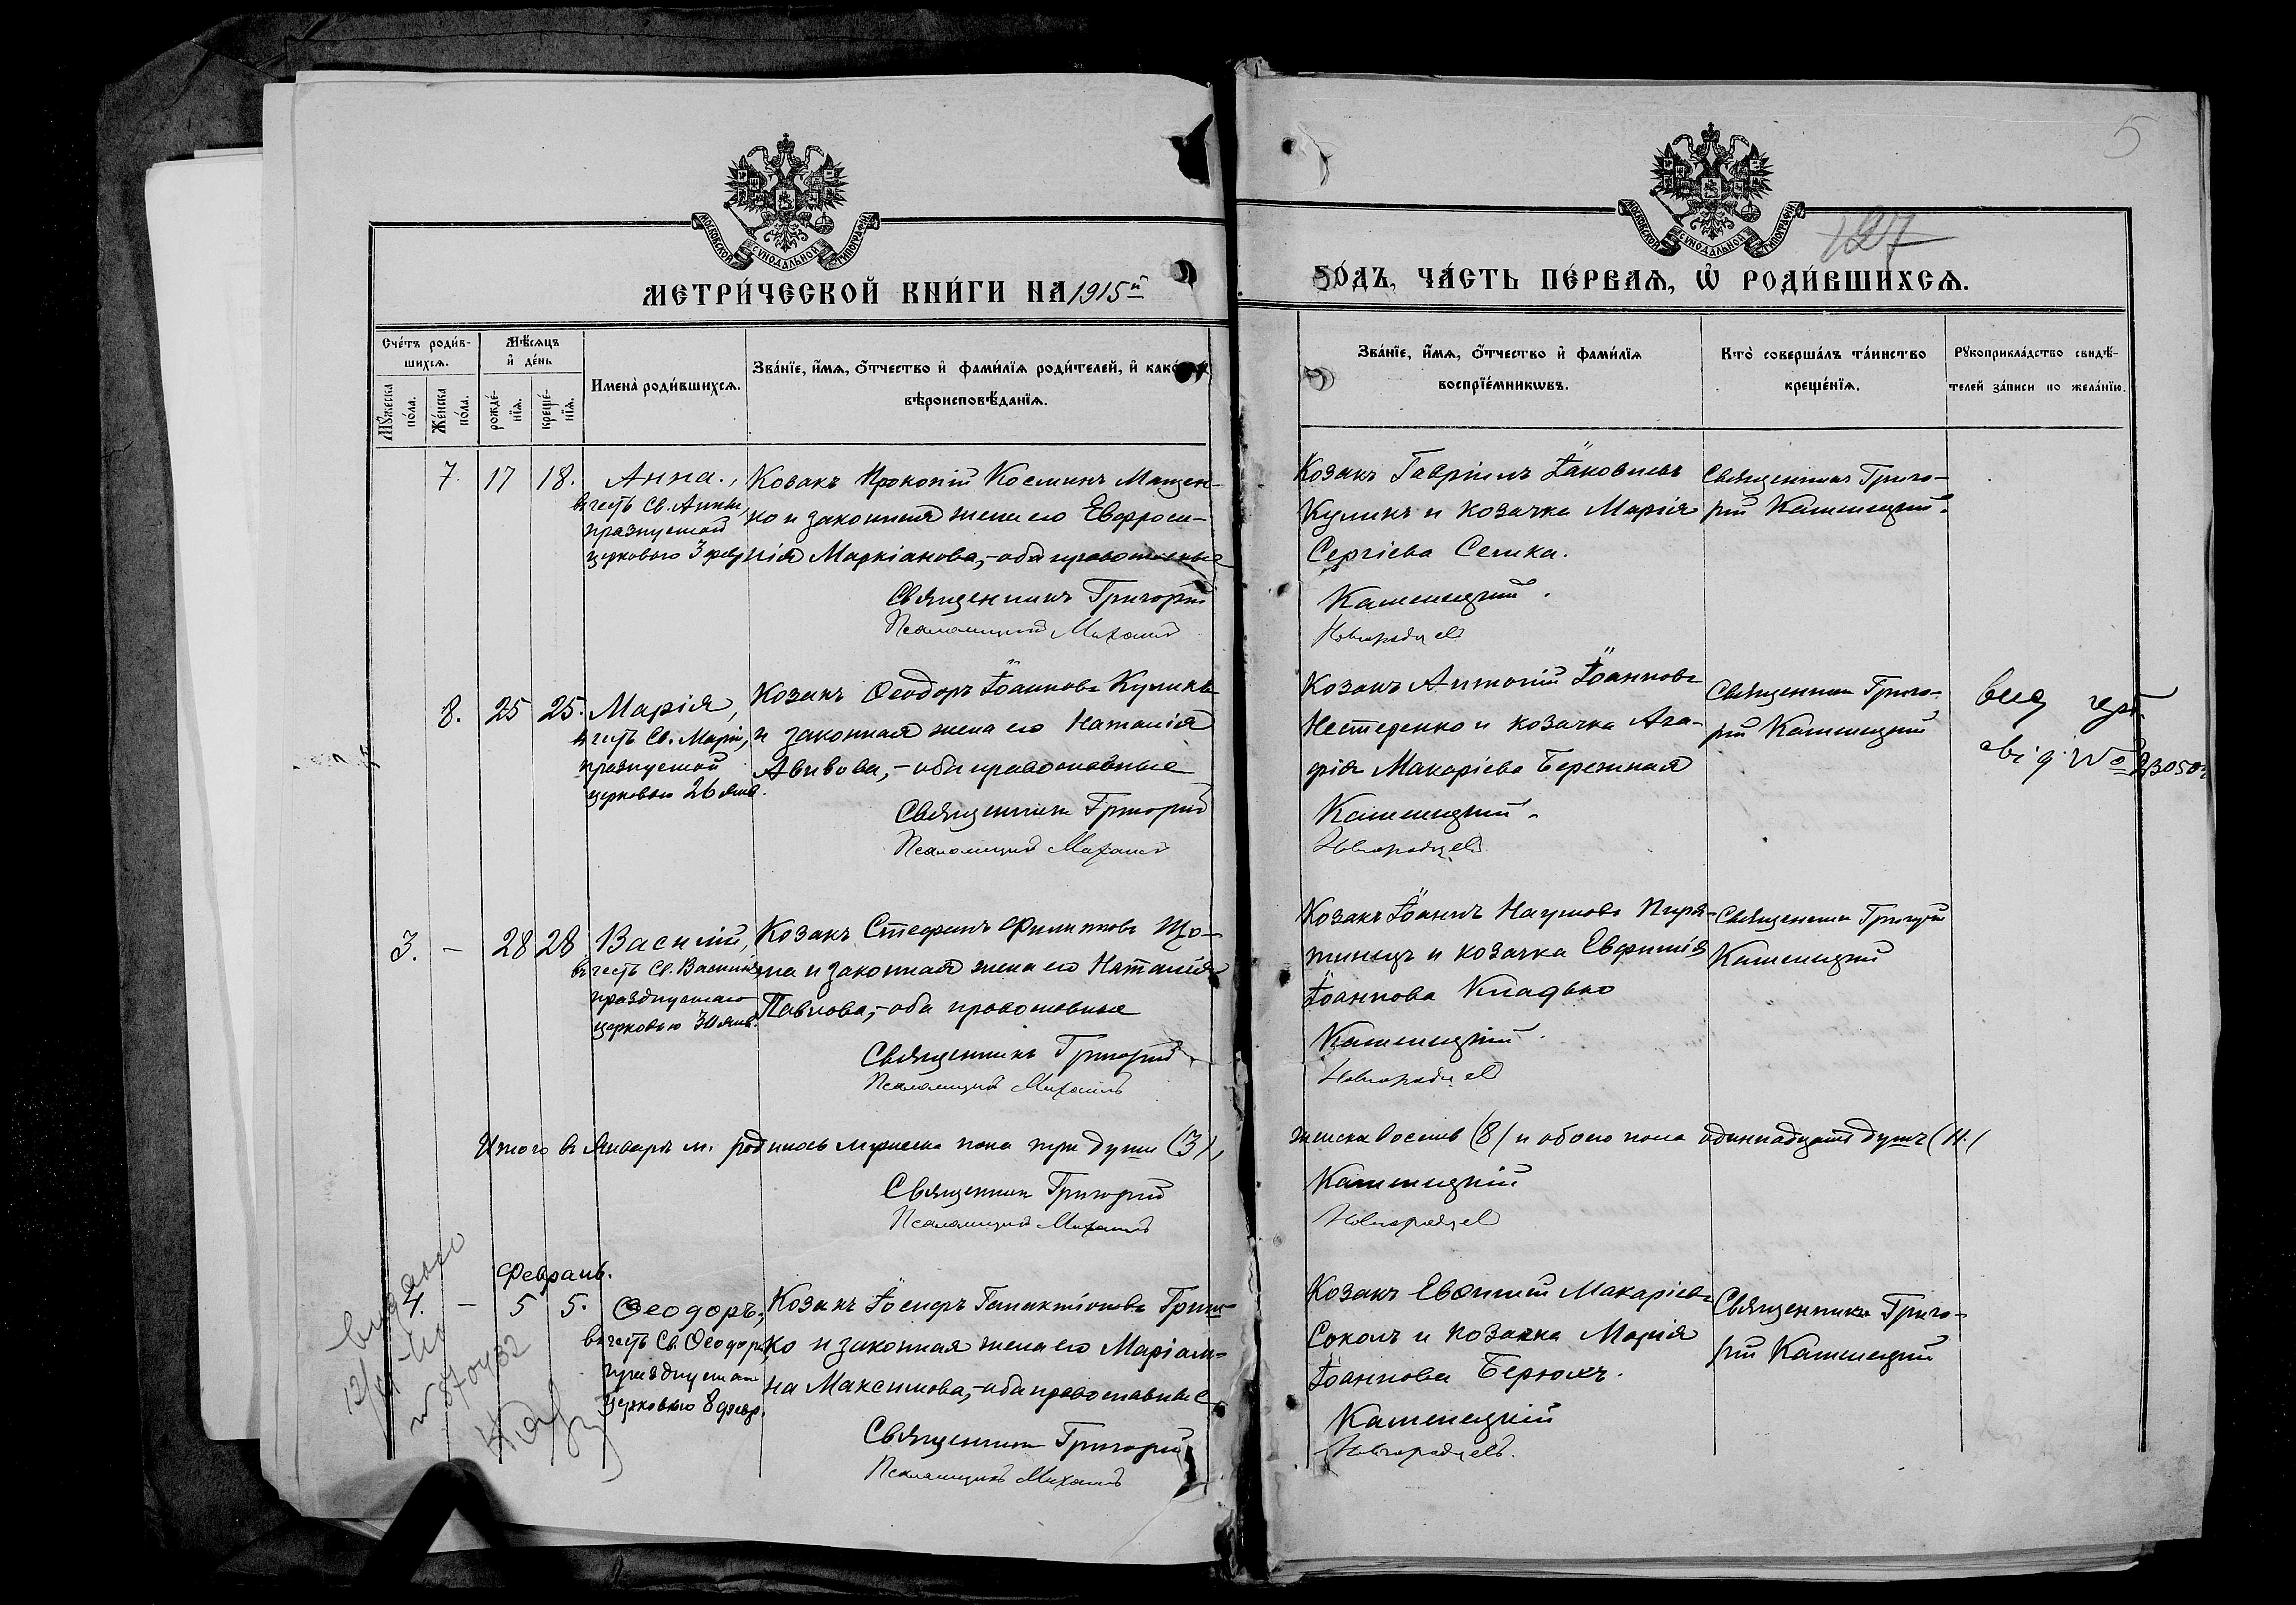 5
127
МОСКОВСКОЙ СУНОДАЛЬНОЙ ТИПОГРАФІИ
МОСКОВСКОЙ СУНОДАЛЬНОЙ ТИПОГРАФІИ
МЕТРИ́ЧЕСКОЙ КНИ́ГИ НА 1915й
ГО́ДЪ, ЧА́СТЬ ПЕ́РВАѦ, Ѡ҆ РОДИ́ВШИХСѦ.
Сче́тъ роди́в-
шихсѧ.
Мꙋ́жеска по́ла.
Же́нска по́ла.
Мѣ́сѧцъ
и҆ де́нь
рожде́-
нїѧ.
креще́-
нїѧ.
Имена̀ роди́вшихсѧ.
Зва́нїе, и҆́мѧ, ѻ҆́тчество и҆ фами́лїѧ роди́телей, и҆ како́гѡ
вѣроисповѣ́данїѧ.
Зва́нїе, и҆́мѧ, ѻ҆́тчество и҆ фами́лїѧ
воспрїе́мникѡвъ.
Кто̀ соверша́лъ та́инство
креще́нїѧ.
Рꙋкоприкла́дство свидѣ́-
телей за́писи по жела́нїю.
7. 17 18. Анна.,
въ честь Св. Анны,
празнуемой
церковью 3 февр
Козакъ Прокопій Косминъ Мащен-
ко и законная жена его Евфроси-
нія Маркіанова,- оба православные
Священникъ Григорій
Псаломщикъ Михаилъ
Козакъ Гавріилъ Іаковлевъ
Куликъ и козачка Марія
Сергіева Семка.
Каменецкій.
Новгородцевъ
Священникъ Григо-
рій Каменецкій.
8. 25 25. Марія,
въ честь Св. Маріи,
празнуемой
церковью 26 янв.
Козакъ Ѳеодоръ Іоанновъ Куликъ
и законная жена его Наталія
Авивова,- оба православные
Священникъ Григорій
Псаломщикъ Михаилъ
Козакъ Антоній Іоанновъ
Нестеренко и козачка Ага-
фія Макаріева Бережная
Каменецкій.
Новгородцевъ
Священникъ Григо-
рій Каменецкій
свід №
3. - 28 28 Василій,
въ честь Св. Василія
празднуемаго
церковью 30 янв.
Козакъ Стефанъ Филипповъ Що-
ма и законная жена его Наталія
Павлова,- оба православные
Священникъ Григорій
Псаломщикъ Михаилъ
Козакъ Іоаннъ Наумовъ Пиря-
тинецъ и козачка Евфимія
Іоаннова Кладько
Каменецкій.
Новгородцевъ
Священникъ Григорій
Каменецкій
Итого въ Январѣ м. родилось мужеска пола три души (3),
женска восемь (8) и обоего пола одиннадцать душъ (11.)
Священникъ Григорій
Псаломщикъ Михаилъ
Каменецкій
Новгородцевъ
Февраль.
4. - 5 5. Ѳеодоръ,
въ честь Св. Ѳеодора,
празднуемаго
церковью 8 февр.
Козакъ Іосифъ Галактіоновъ Гриш-
ко и законная жена его Маріам-
на Максимова,- оба православные
Священникъ Григорій
Псаломщикъ Михаилъ
Козакъ Евѳимій Макаріевъ
Соколъ и козачка Марія
Іоаннова Берюхъ.
Каменецкій
Новгородцевъ.
Священникъ Григо-
рій Каменецкій
видано